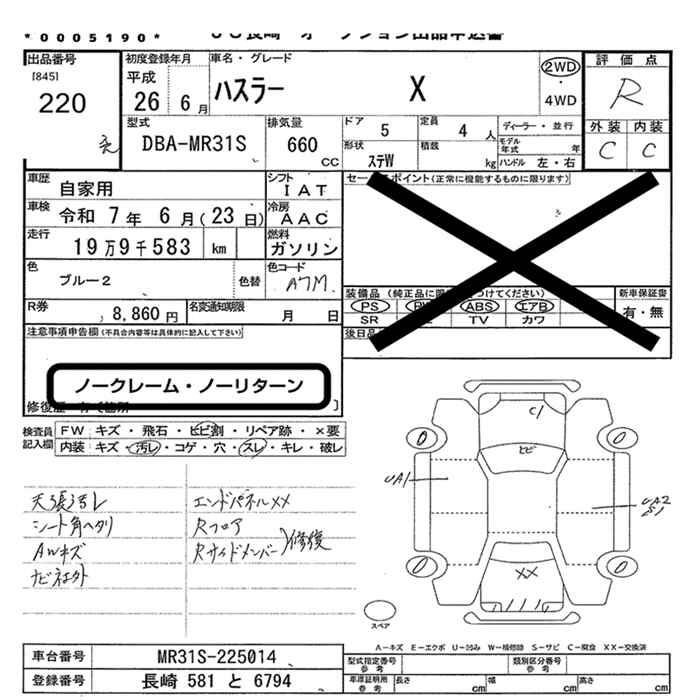 *0005190*
出品番号
[845]
220
初度登録年月
平成
26年 6月
車名・グレード
ハスラー X
2WD
・
4WD
評価点
R
外装 内装
C C
型式
DBA-MR31S
排気量
660
CC
ドア
5
定員
4 人
形状
ステW
積載
kg
ディーラー・並行
モデル年式 年
ハンドル 左・右
車歴
自家用
シフト
IAT
車検
令和 7年 6月(23日)
冷房
AAC
走行
19万9千583 km
燃料
ガソリン
色
ブルー2
色替
色コード
A7M
R券
8,860円
名変通知期限
月 日
セー ポイント(正常に機能するものに限ります)
装備品 (純正品に限 つけてください)
PS ABS エアB
SR TV カワ
後日品
新車保証書
有・無
注意事項申告欄(不具合内容等は具体的に記入して下さい)
ノークレーム・ノーリターン
検査員
記入欄
FW キズ・飛石・ヒビ割・リペア跡・×要
内装 キズ・汚レ・コゲ・穴・スレ・キレ・破レ
天張汚レ
シート角ヘタリ
AWキズ
エンドパネルXX
Rフロア
Rサイドメンバー
修復
C1
ヒビ
UA1
UA2
S1
XX
0
0
0
0
スペア
A-キズ E-エクボ U-凹み W-補修跡 S-サビ C-腐食 XX-交換済
車台番号
MR31S-225014
登録番号
長崎 581 と 6794
型式指定番号
参考
類別区分番号
参考
車庫証明用
参考
長さ cm 幅 cm 高さ cm